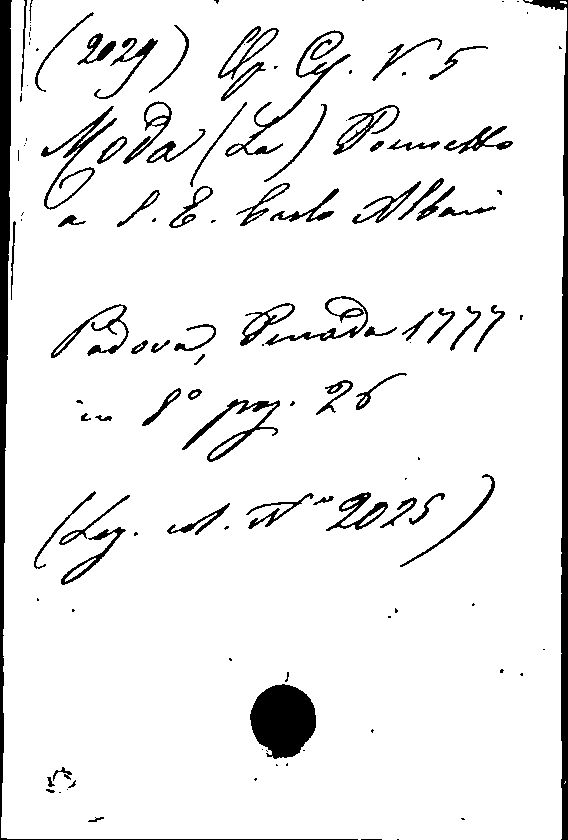 (2029) Op. Cg. V. 5
Moda (La) Poemetto
a S. E. Carlo Albani
Padova, Penada 1777.
in 8° pag. 26
(Leg. al N° 2025)